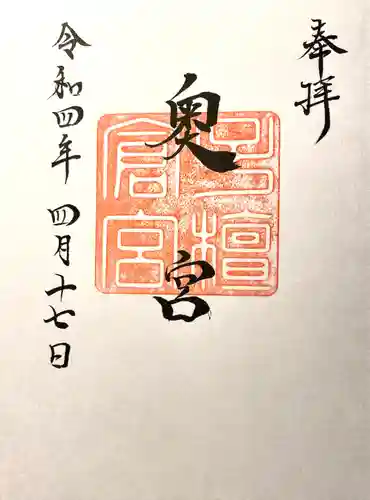 奉拝
奥宮
令和四年 四月十七日